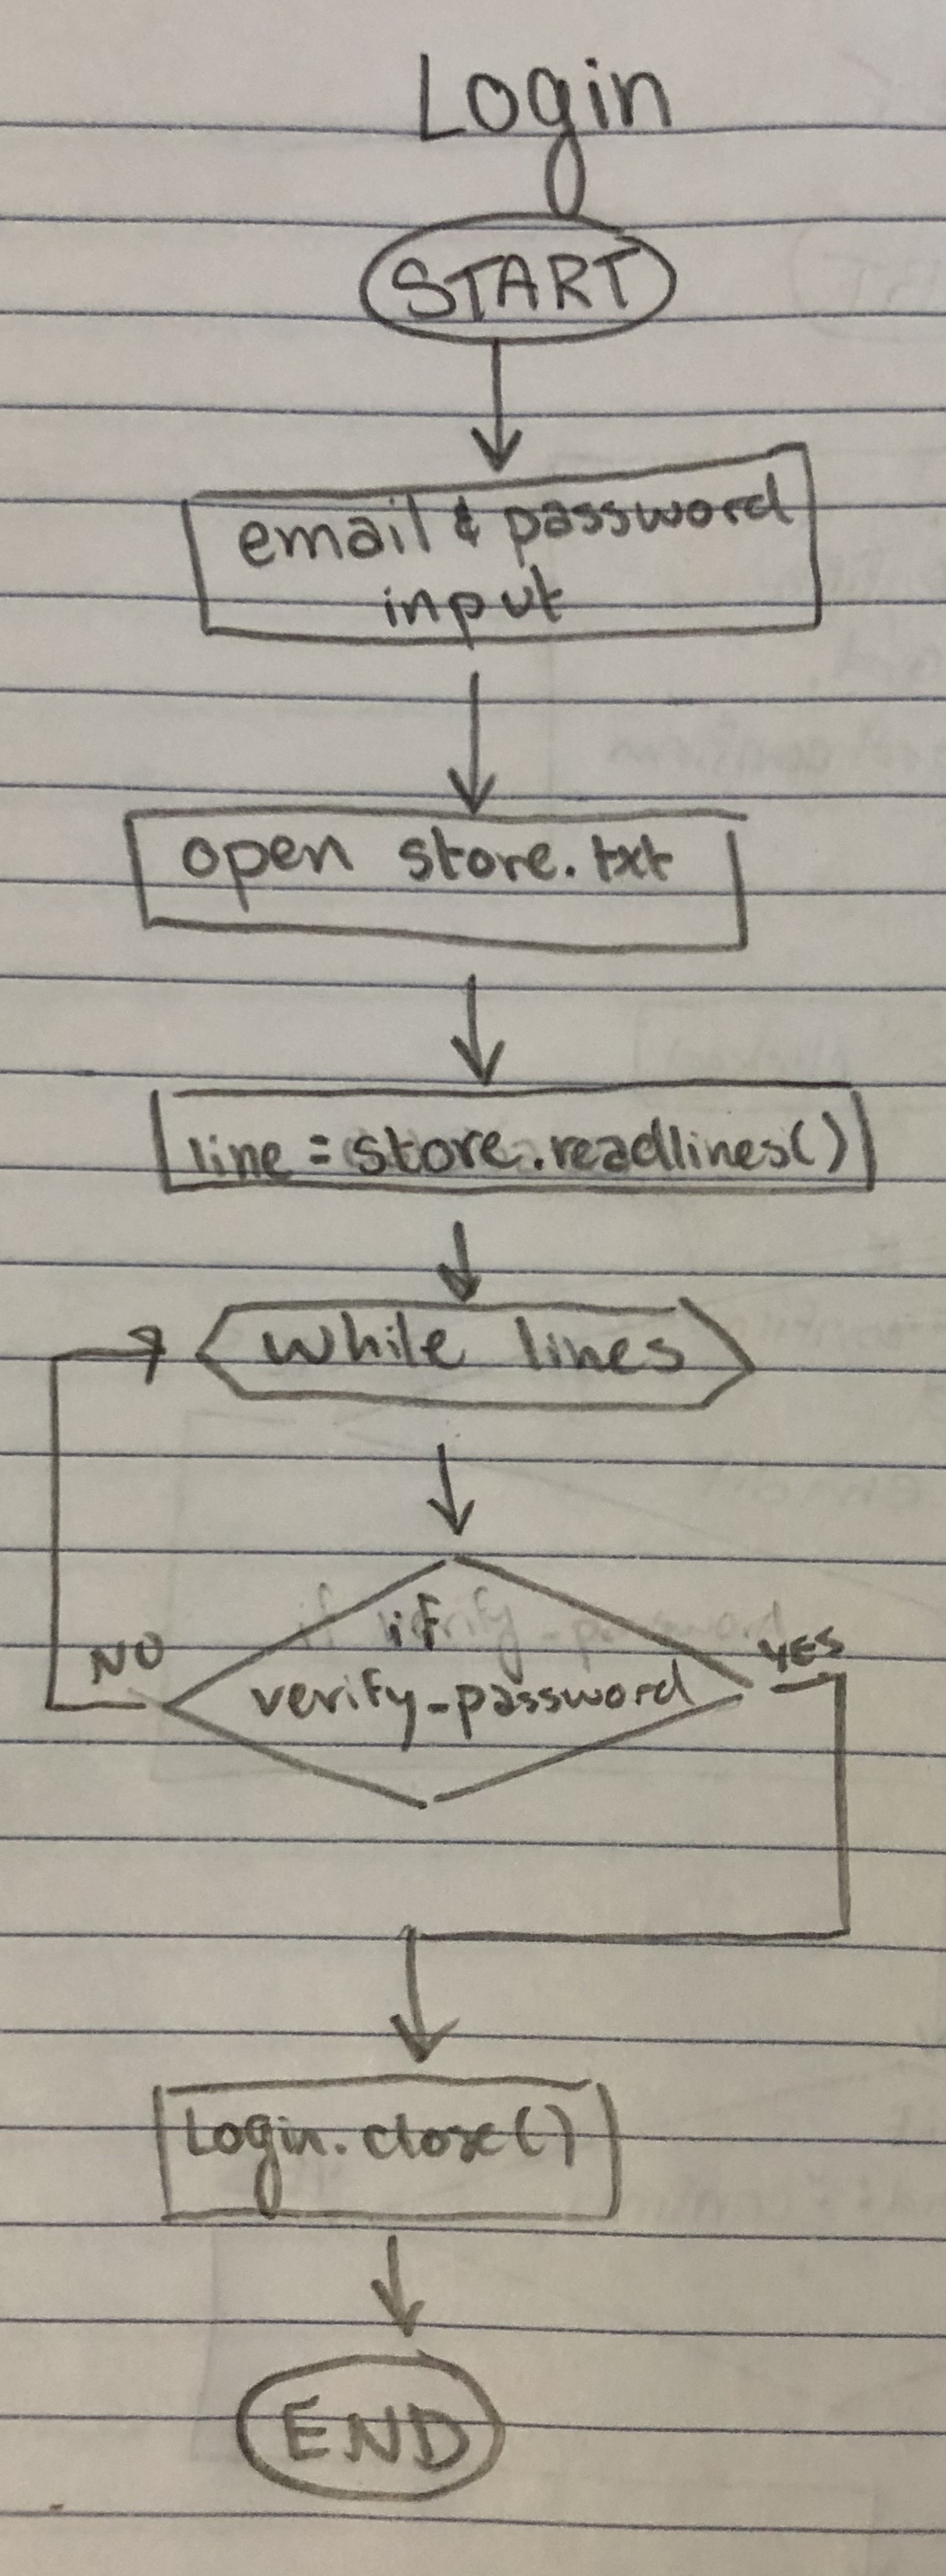 Login
START
email & password
input
open store.txt
line = store.readlines()
while lines
if
verify_password
NO
YES
Login.close()
END